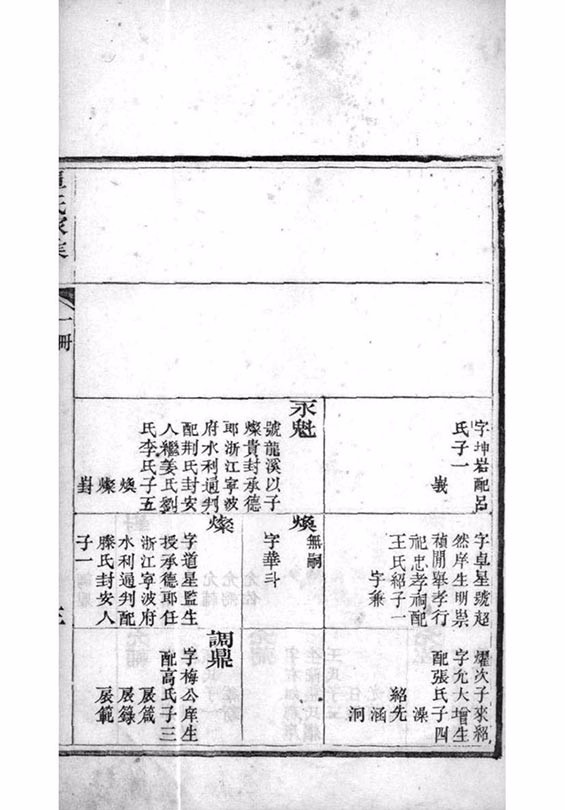 字坤岩配呂
氏子一
㠖
永魁
號龍溪以子
燦貴封承德
郎浙江寧波
府水利通判
配荆氏封安
人繼姜氏劉
氏李氏子五
煥
燦
字卓星號超
然庠生明崇
禎間舉孝行
祀忠孝祠配
王氏紹子一
字兼
煥
無嗣
字華斗
燦
字道星監生
授承德郎任
浙江寧波府
水利通判配
滕氏封安人
子一
耀次子來紹
字允大增生
配張氏子四
澡
紹先
涵
泂
調鼎
字梅公庠生
配高氏子三
展箴
展錄
展範
氏家
一冊